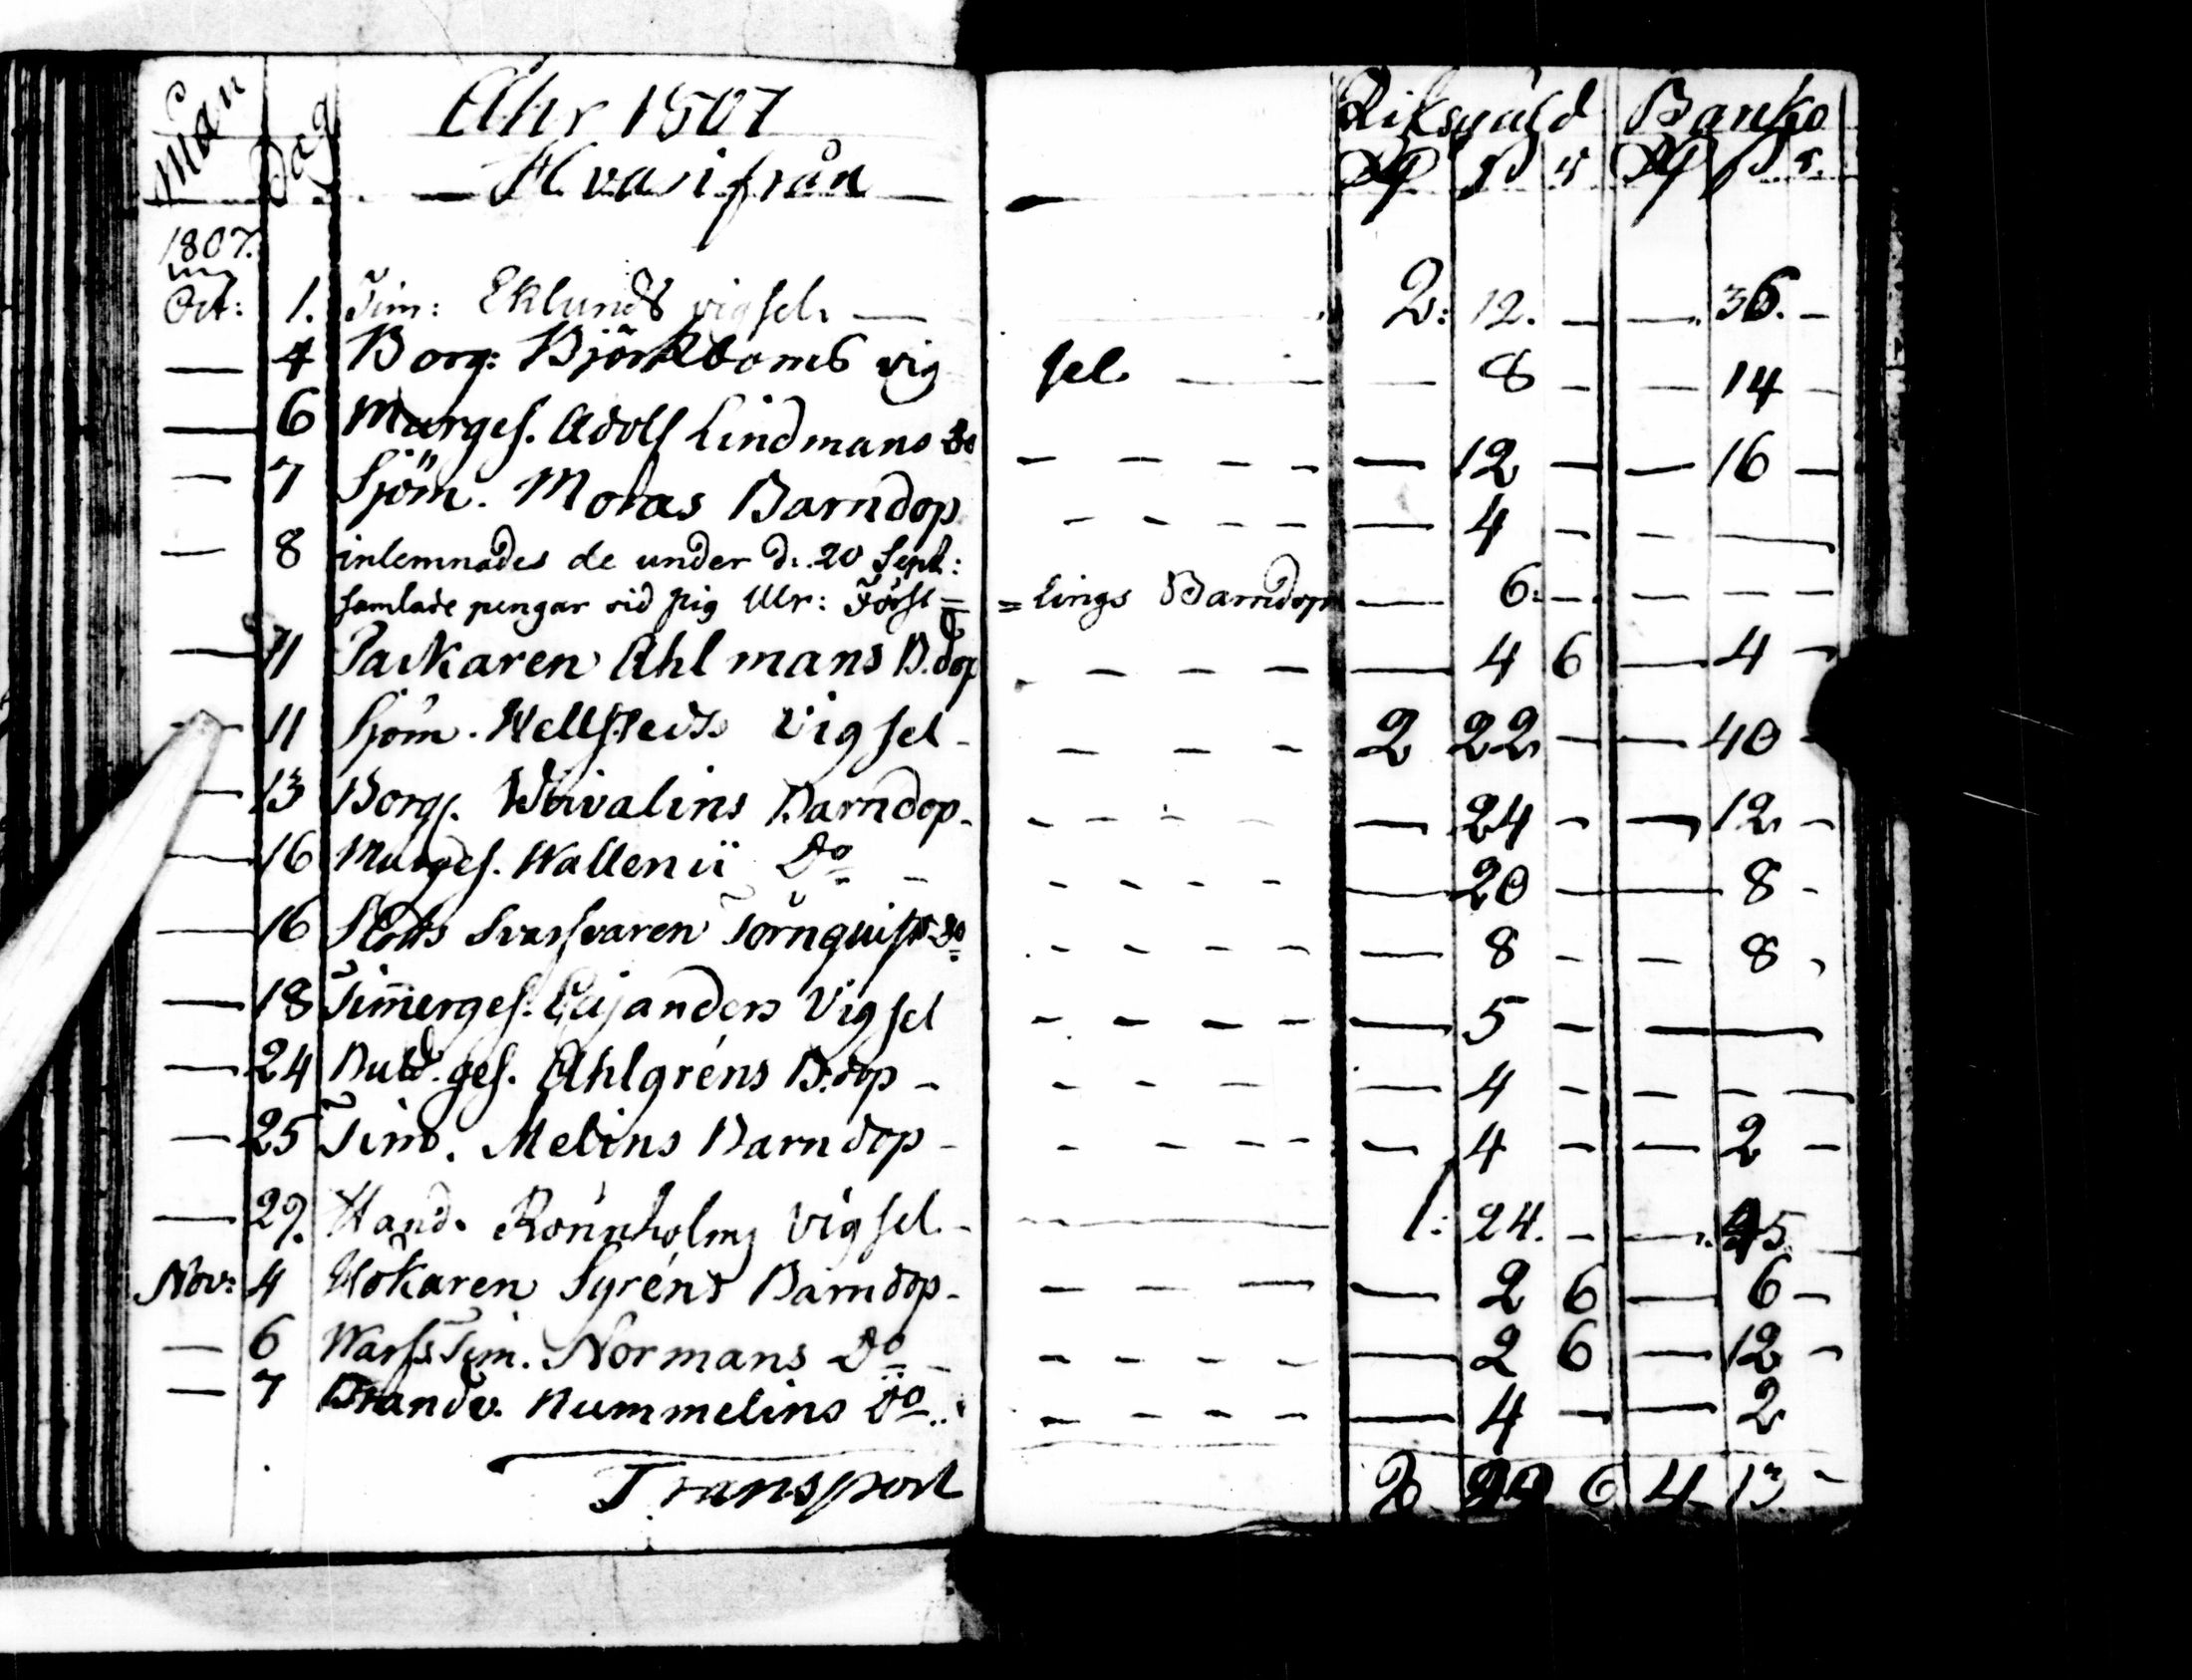 Mån Dag Åhr 1807 Riksgäld Banko
Hvarifrån Rd ß r Rd ß r.
1807.
Oct: 1. Tim: Eklunds vigsel. — 2: 12. — — 36. —
— 4 Borg: Björkboms vigsel — — 8 — — 14 —
— 6 Murges. Adolf Lindmans do — 12 — — 16 —
— 7 Sjöm. Molas Barndop — 4 — — —
— 8 inlemnades de under d: 20 Sept:
samlade pengar vid pig Ulr: Först= =lings Barndop — 6. — — — —
— 11 Packaren Ahlmans B.dop — 4 6 — 4 —
— 11 Sjöm. Wellstedts Vigsel — 2 22 — — 40 —
— 13 Borg. Barndop — — 24 — — 12 —
— 16 Murges. Wallenii Do — — 20 — — 8 —
— 16 Törnquists do — 8 — — 8 —
— 18 Timerges. Cajanders Vigsel — 5 — — —
— 24 ges. Ahlgréns B.dop — — 4 — — — —
— 25 Tim. Melins Barndop — — 4 — — 2 —
— 29. Hand. Rönnholms vigsel — 1: 24. — — 45. —
Nov: 4 Hökaren Syréns Barndop — — 2 6 — 6 —
— 6 Warfs Tim. Normans Do — — 2 6 — 12 —
— 7 Brandv. Nummelins do — — 4 — — 2
Transport 6 4 13 —